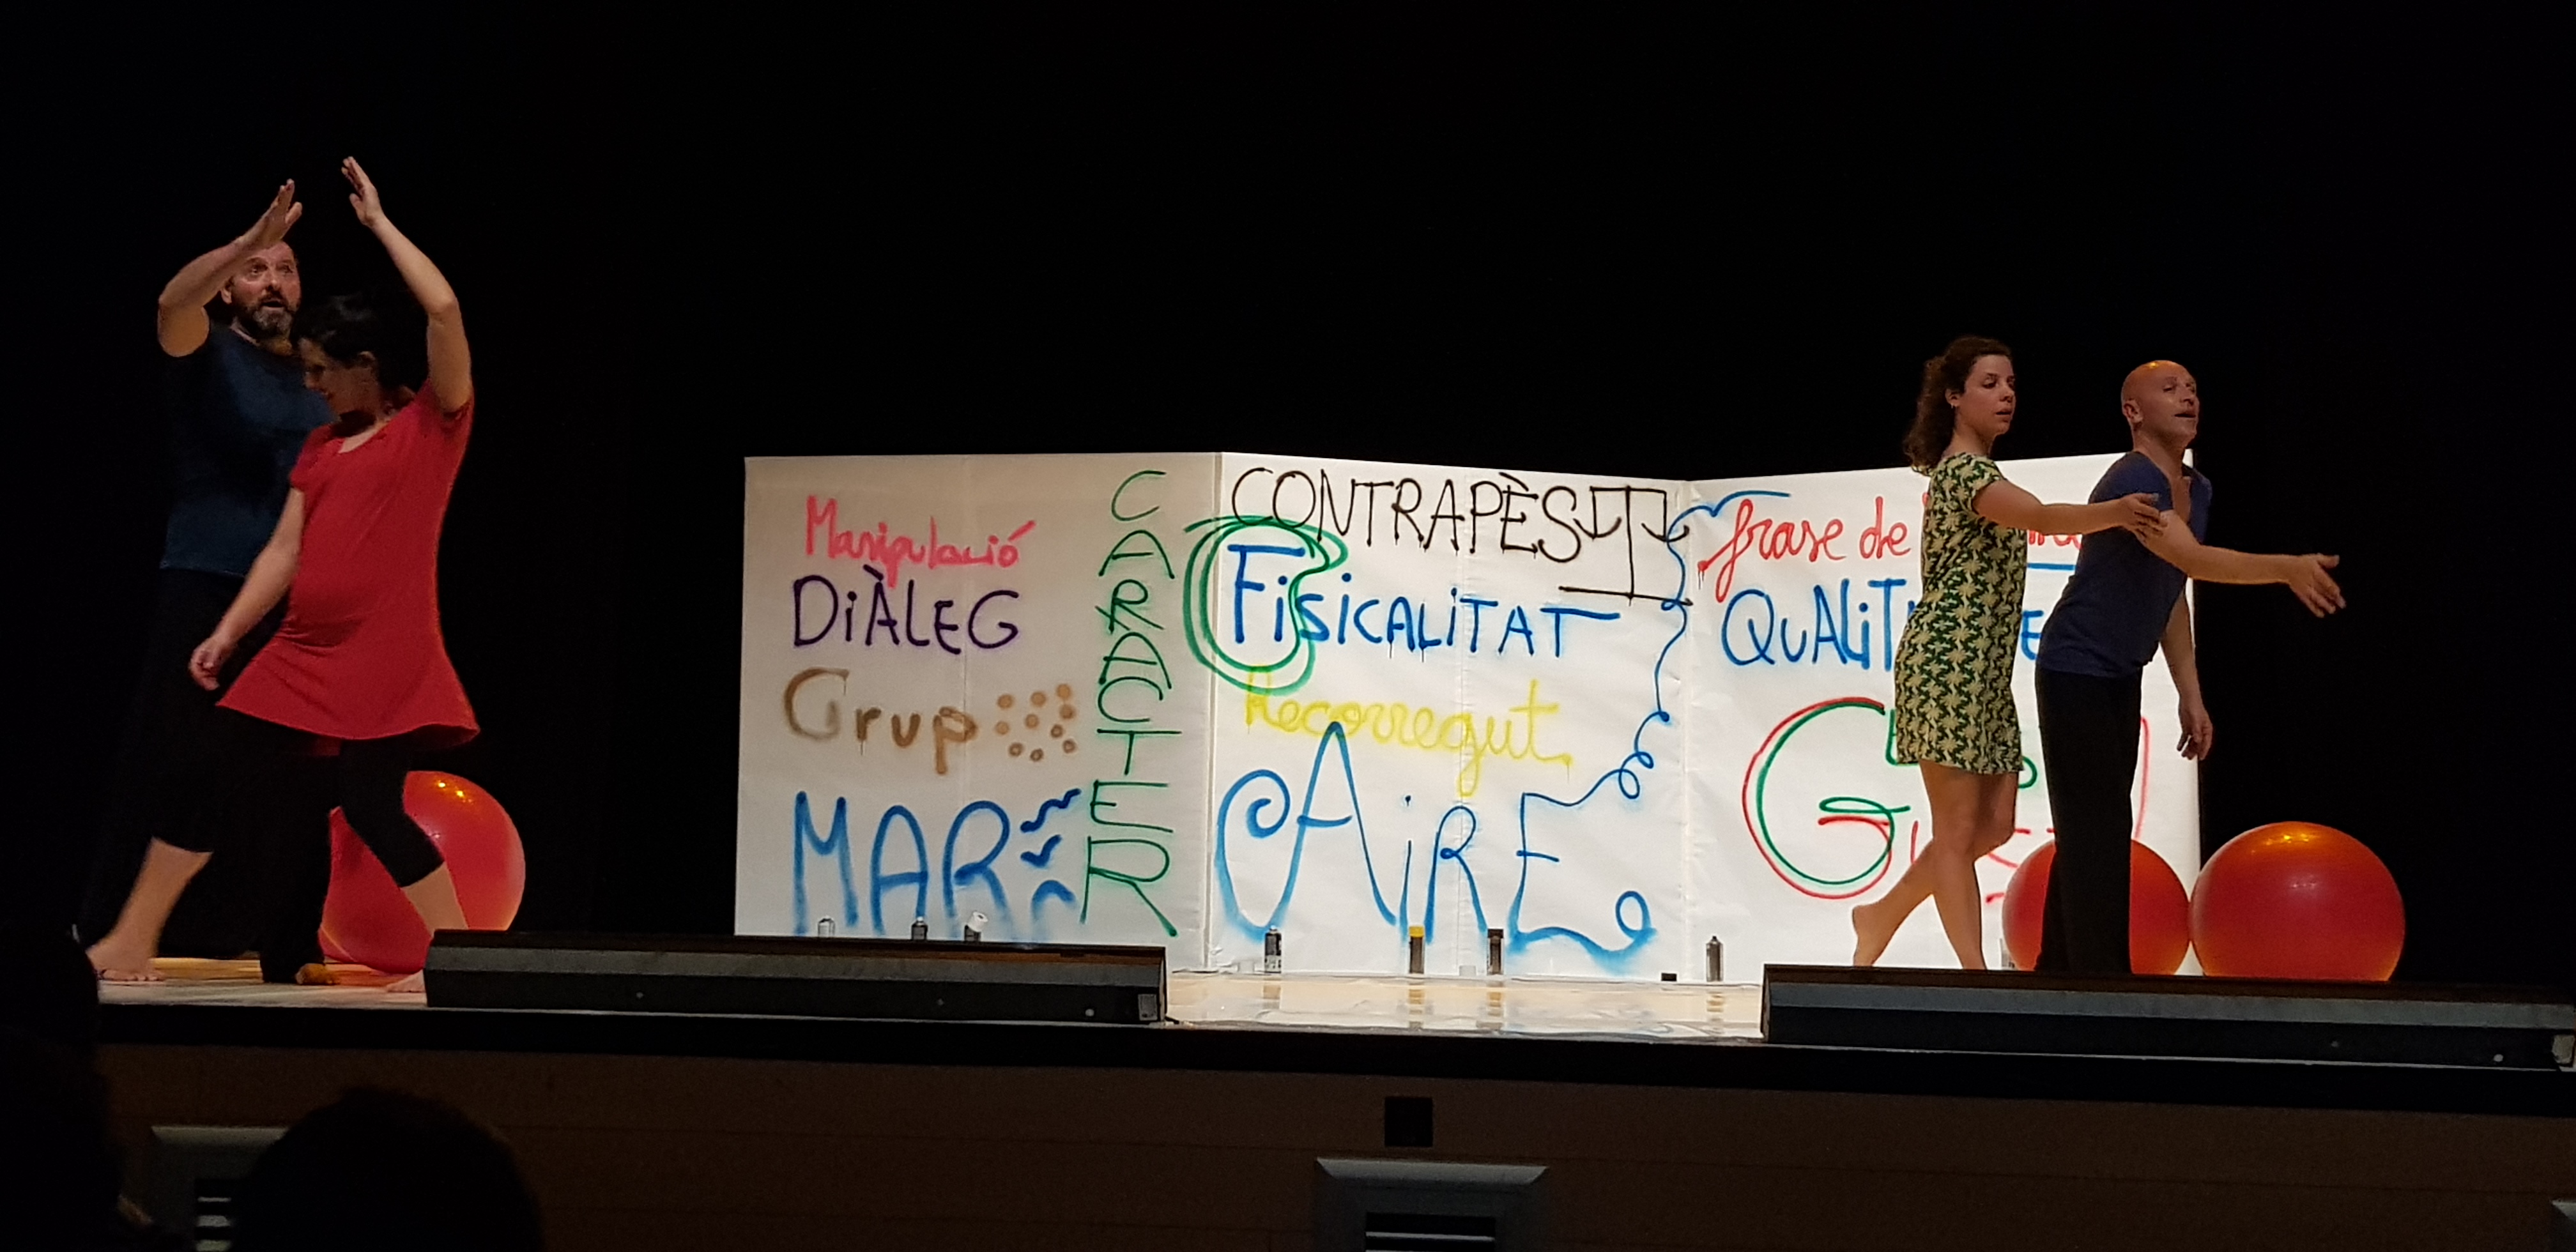 Manipulació
DiÀLEG
Grup
MAR
CARACTER
CONTRAPÈS
FiSICALITAT
Recorregut
AiRE
frase de